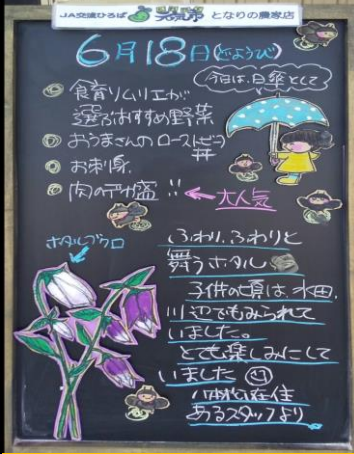 JA交流ひろば 元気市 となりの農家店
6月18日(どようび)
今日は、日傘として
◎ 食育ソムリエが
選ぶおすすめ野菜
◎ おうまさんのローストビーフ
丼
◎ お刺身
◎ 肉のデカ盛!!
← 大人気
ホタルブクロ
ふわり、ふわりと
舞うホタル
子供の頃は、水田、
川辺でもみられて
いました。
とても楽しみにして
いました
在住
あるスタッフより